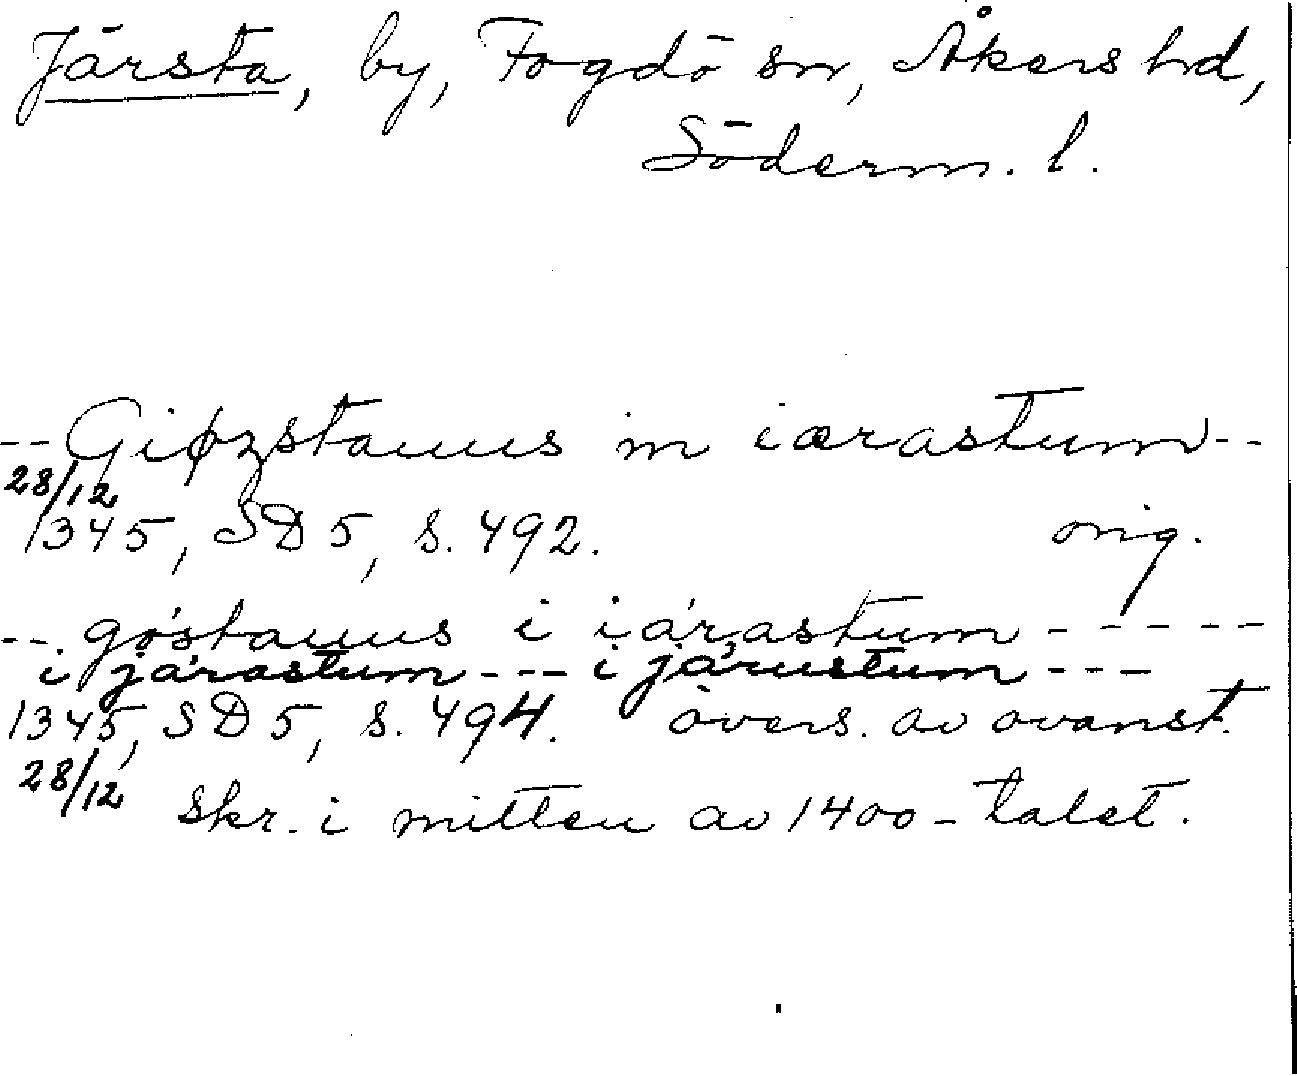 Järsta, by, Fogdö sn, Åkers hd,
Söderm. l.
-- Giøzstauus in iærastum --
28/12
1345, SD 5, s. 492. orig.
-- góstauus i iárastum - - - - -
i járastum --- i járustum ---
1345, SD 5, s. 494. övers. av ovanst.
28/12 skr. i mitten av 1400-talet.